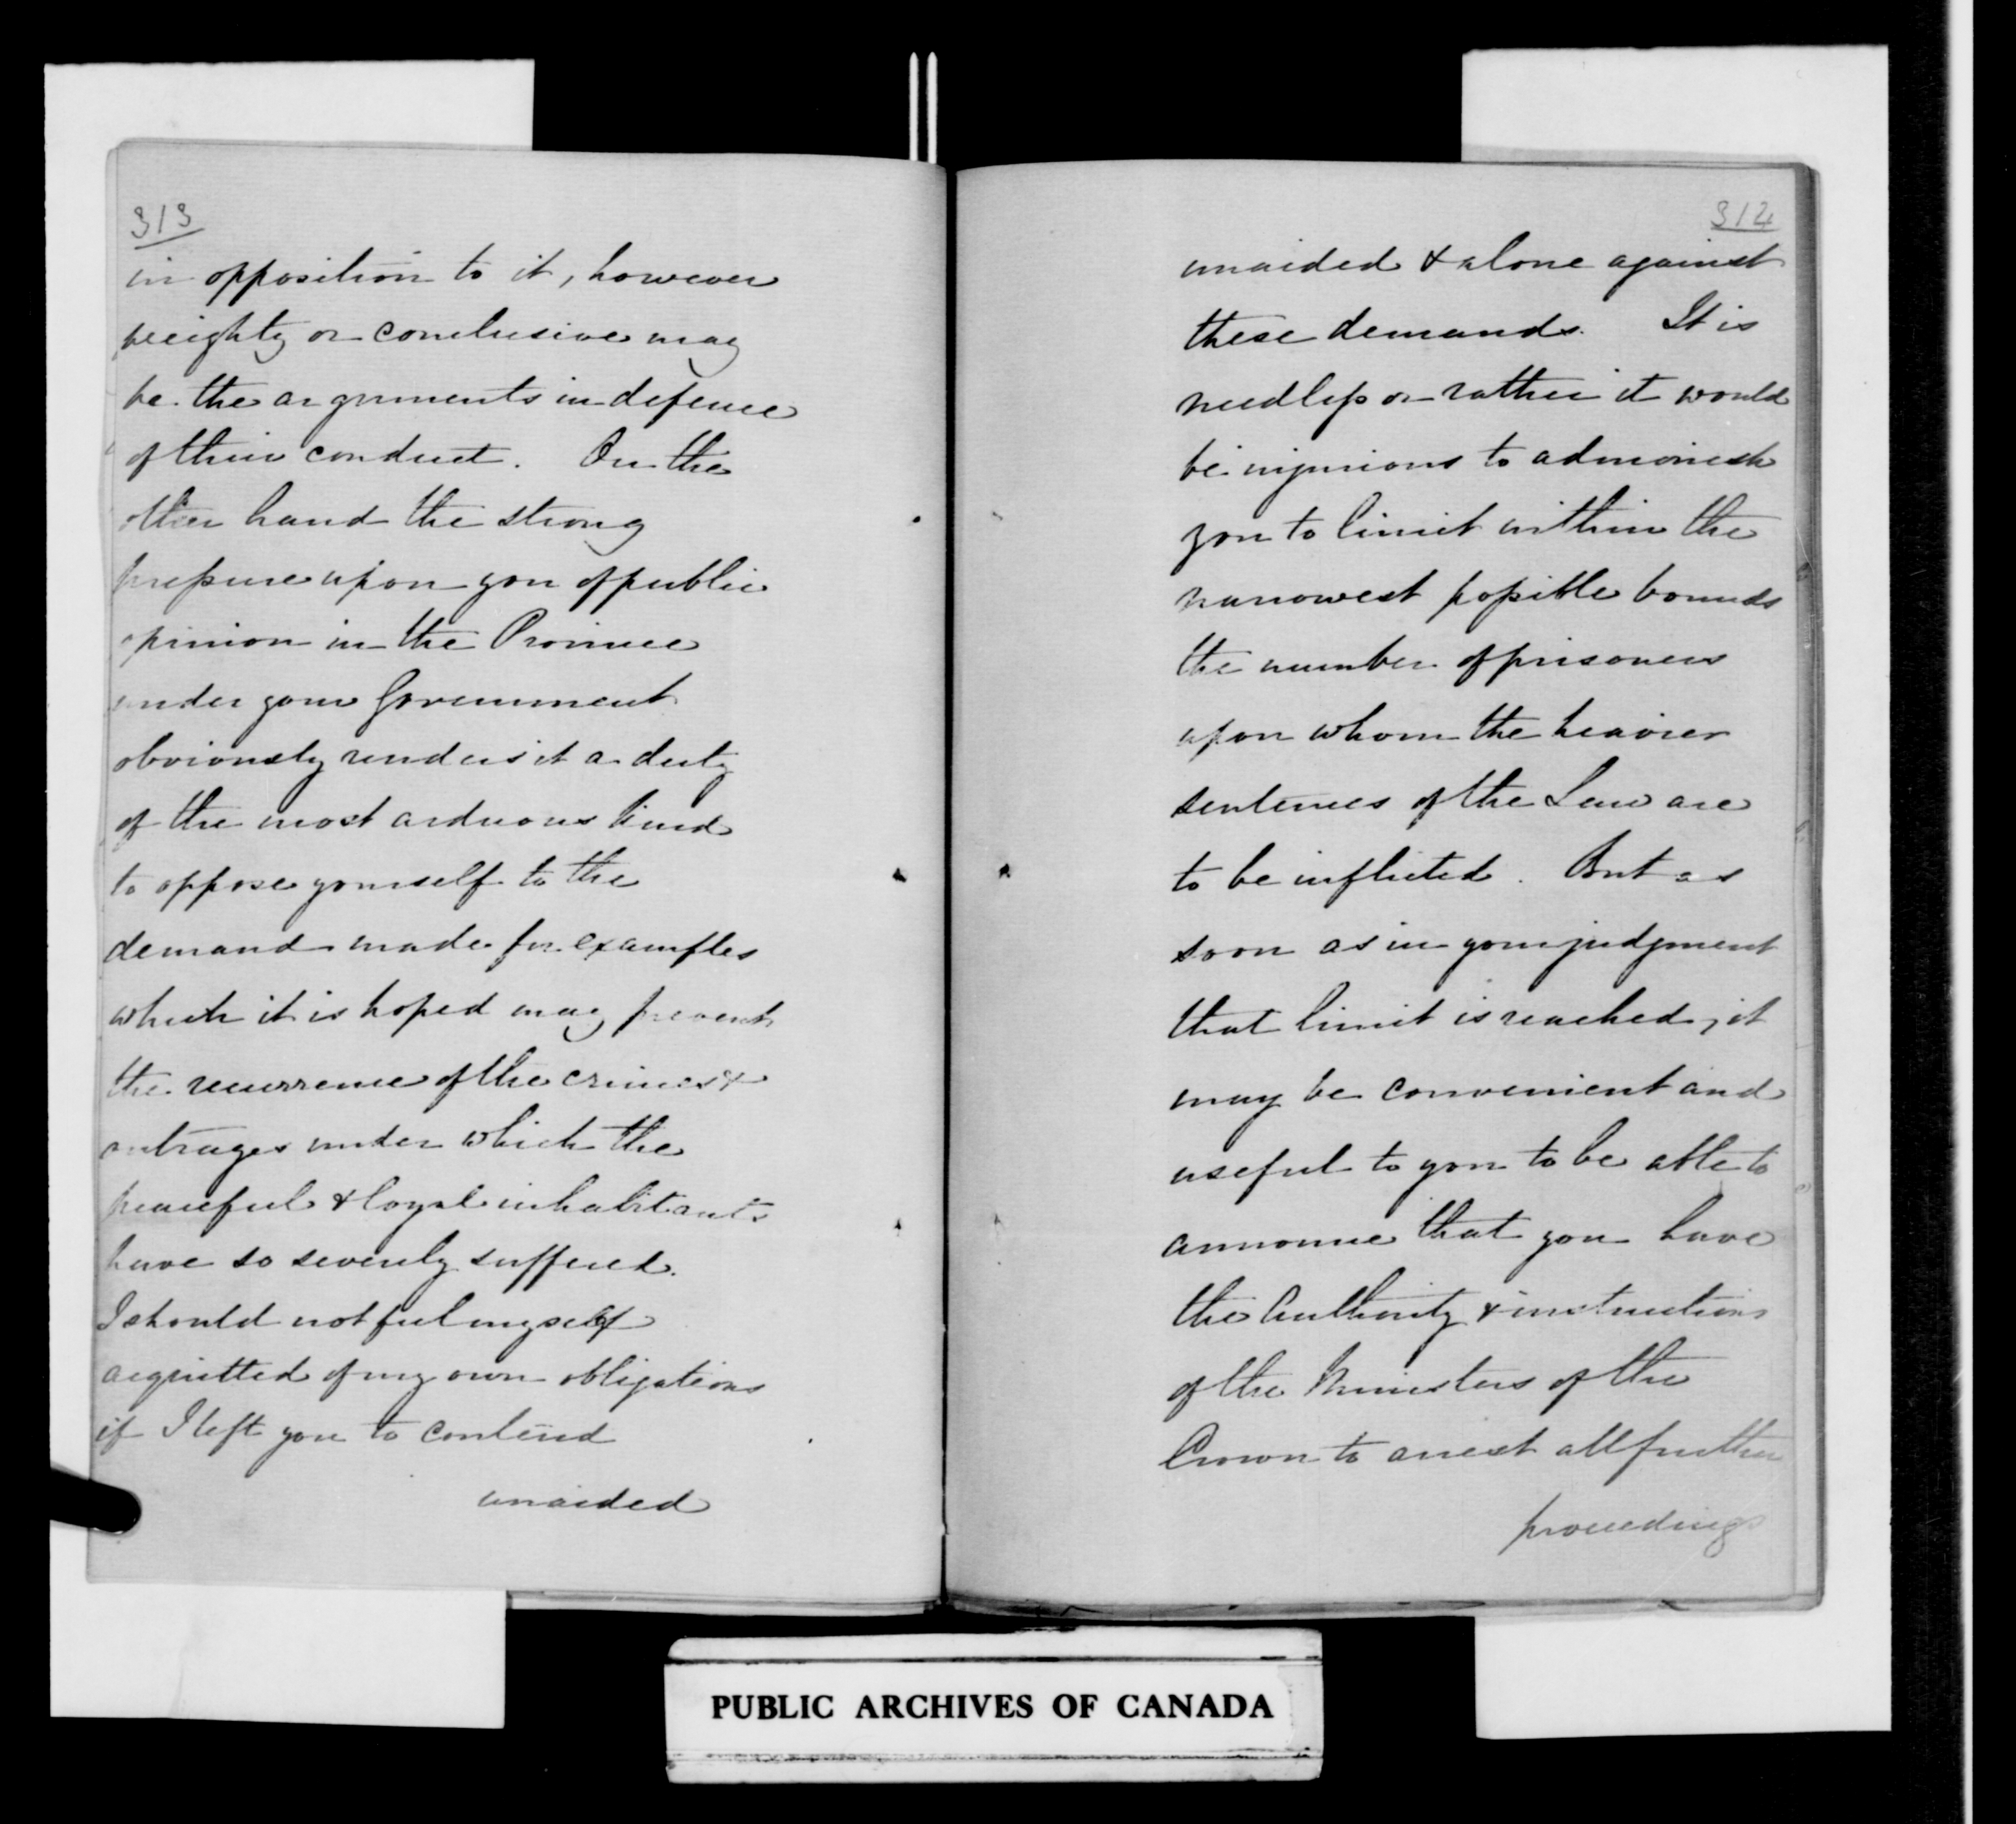 313
in opposition to it, however
weighty or conclusive may
be the arguments in defence
of their conduct. On the
other hand the strong
pressure upon you of public
opinion in the Province
under your Government
obviously renders it a duty
of the most arduous kind
to oppose yourself to the
demand made for examples
which it is hoped may prevent
the recurrence of the crimes &
outrages under which the
peaceful & loyal inhabitants
have so severely suffered.
I should not feel myself
acquitted of my own obligations
if I left you to contend
unaided
314
unaided & alone against
these demands. It is
needless or rather it would
be injurious to admonish
you to limit within the
narrowest possible bounds
the number of prisoners
upon whom the heavier
sentences of the Law are
to be inflicted. But as
soon as in your judgment
that limit is reached, it
may be convenient and
useful to you to be able to
announce that you have
the Authority & instructions
of the Ministers of the
Crown to arrest all further
proceedings
PUBLIC ARCHIVES OF CANADA